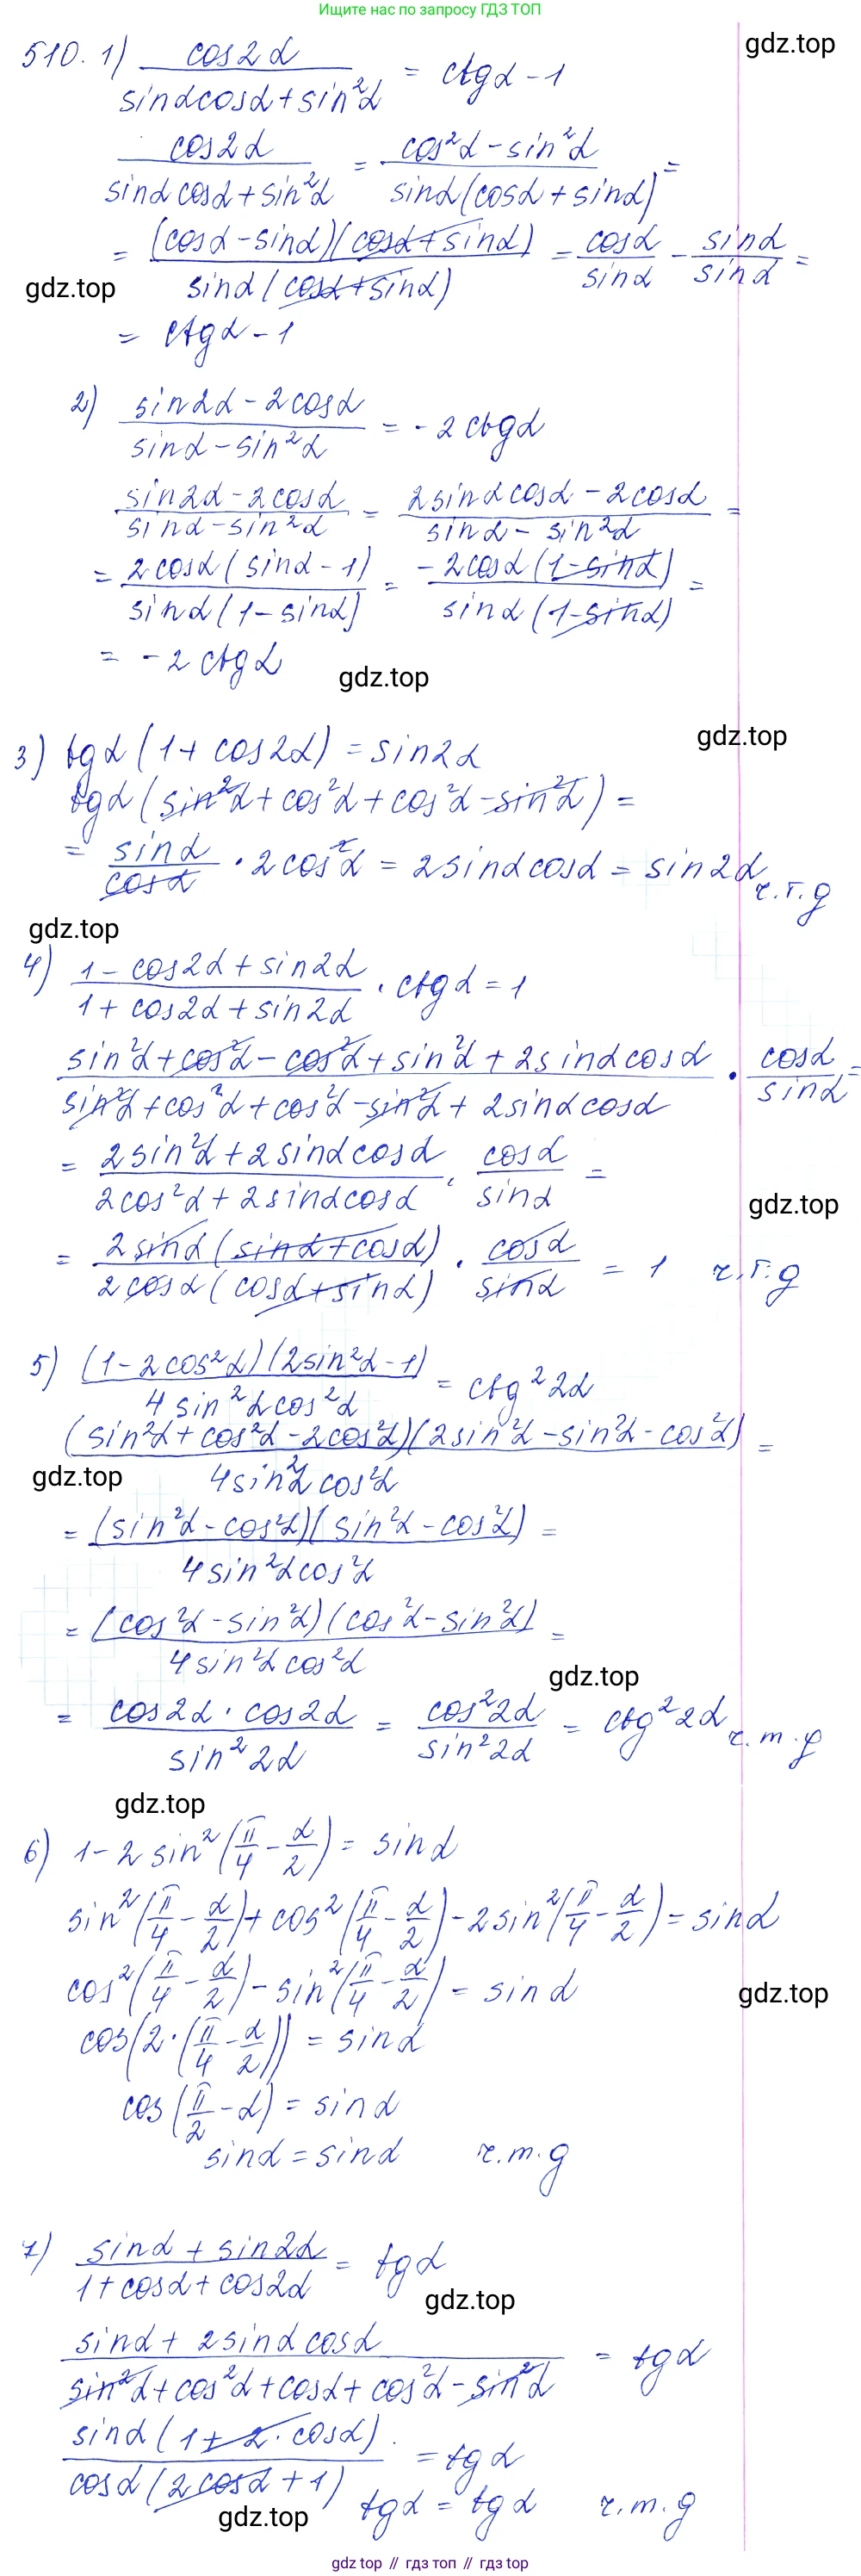 Ищите нас по запросу ГДЗ ТОП
gdz.top
510. 1) cos2α / (sinαcosα + sin²α) = ctgα - 1
cos2α / (sinαcosα + sin²α) = (cos²α - sin²α) / (sinα(cosα + sinα)) =
= (cosα - sinα)(cosα + sinα) / (sinα(cosα + sinα)) = cosα/sinα - sinα/sinα =
gdz.top
= ctgα - 1
2) (sin2α - 2cosα) / (sinα - sin²α) = -2ctgα
(sin2α - 2cosα) / (sinα - sin²α) = (2sinαcosα - 2cosα) / (sinα - sin²α) =
= 2cosα(sinα - 1) / (sinα(1 - sinα)) = -2cosα(1 - sinα) / (sinα(1 - sinα)) =
= -2ctgα
gdz.top
gdz.top
3) tgα(1 + cos2α) = sin2α
tgα(sin²α + cos²α + cos²α - sin²α) =
= sinα/cosα · 2cos²α = 2sinαcosα = sin2α ч.т.д
gdz.top
4) (1 - cos2α + sin2α) / (1 + cos2α + sin2α) · ctgα = 1
(sin²α + cos²α - cos²α + sin²α + 2sinαcosα) / (sin²α + cos²α + cos²α - sin²α + 2sinαcosα) · cosα/sinα =
= (2sin²α + 2sinαcosα) / (2cos²α + 2sinαcosα) · cosα/sinα =
gdz.top
= 2sinα(sinα + cosα) / (2cosα(cosα + sinα)) · cosα/sinα = 1 ч.т.д
5) (1 - 2cos²α)(2sin²α - 1) / (4sin²αcos²α) = ctg²2α
(sin²α + cos²α - 2cos²α)(2sin²α - sin²α - cos²α) / (4sin²αcos²α) =
gdz.top
= (sin²α - cos²α)(sin²α - cos²α) / (4sin²αcos²α) =
= (cos²α - sin²α)(cos²α - sin²α) / (4sin²αcos²α) =
gdz.top
= cos2α · cos2α / sin²2α = cos²2α / sin²2α = ctg²2α ч.т.д
gdz.top
6) 1 - 2sin²(π/4 - α/2) = sinα
sin²(π/4 - α/2) + cos²(π/4 - α/2) - 2sin²(π/4 - α/2) = sinα
cos²(π/4 - α/2) - sin²(π/4 - α/2) = sinα
gdz.top
cos(2·(π/4 - α/2)) = sinα
cos(π/2 - α) = sinα
sinα = sinα ч.т.д
7) (sinα + sin2α) / (1 + cosα + cos2α) = tgα
gdz.top
(sinα + 2sinαcosα) / (sin²α + cos²α + cosα + cos²α - sin²α) = tgα
sinα(1 + 2·cosα) / (cosα(2cosα + 1)) = tgα
gdz.top
tgα = tgα ч.т.д
gdz top // гдз топ // gdz top